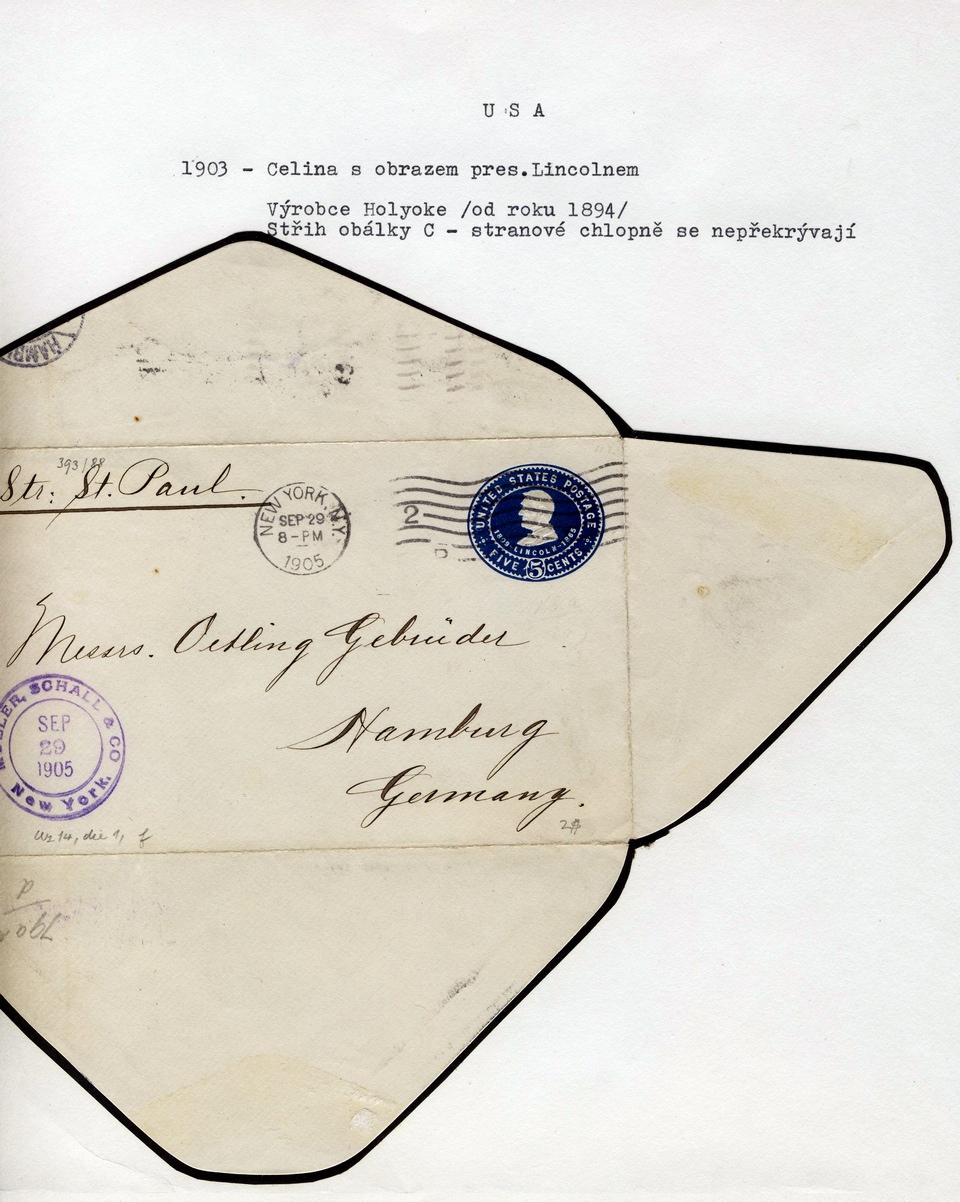 U S A
1903 - Celina s obrazem pres.Lincolnem
Výrobce Holyoke /od roku 1894/
Střih obálky C - stranové chlopně se nepřekrývají
393/88
Str: St. Paul.
NEW YORK, N.Y.
SEP 29
8-PM
1905
2
UNITED STATES POSTAGE
1809 LINCOLN 1865
FIVE 5 CENTS
Messrs. Oetling Gebrüder
Hamburg
Germany.
SCHALL & CO
SEP
29
1905
New York.
die 1,